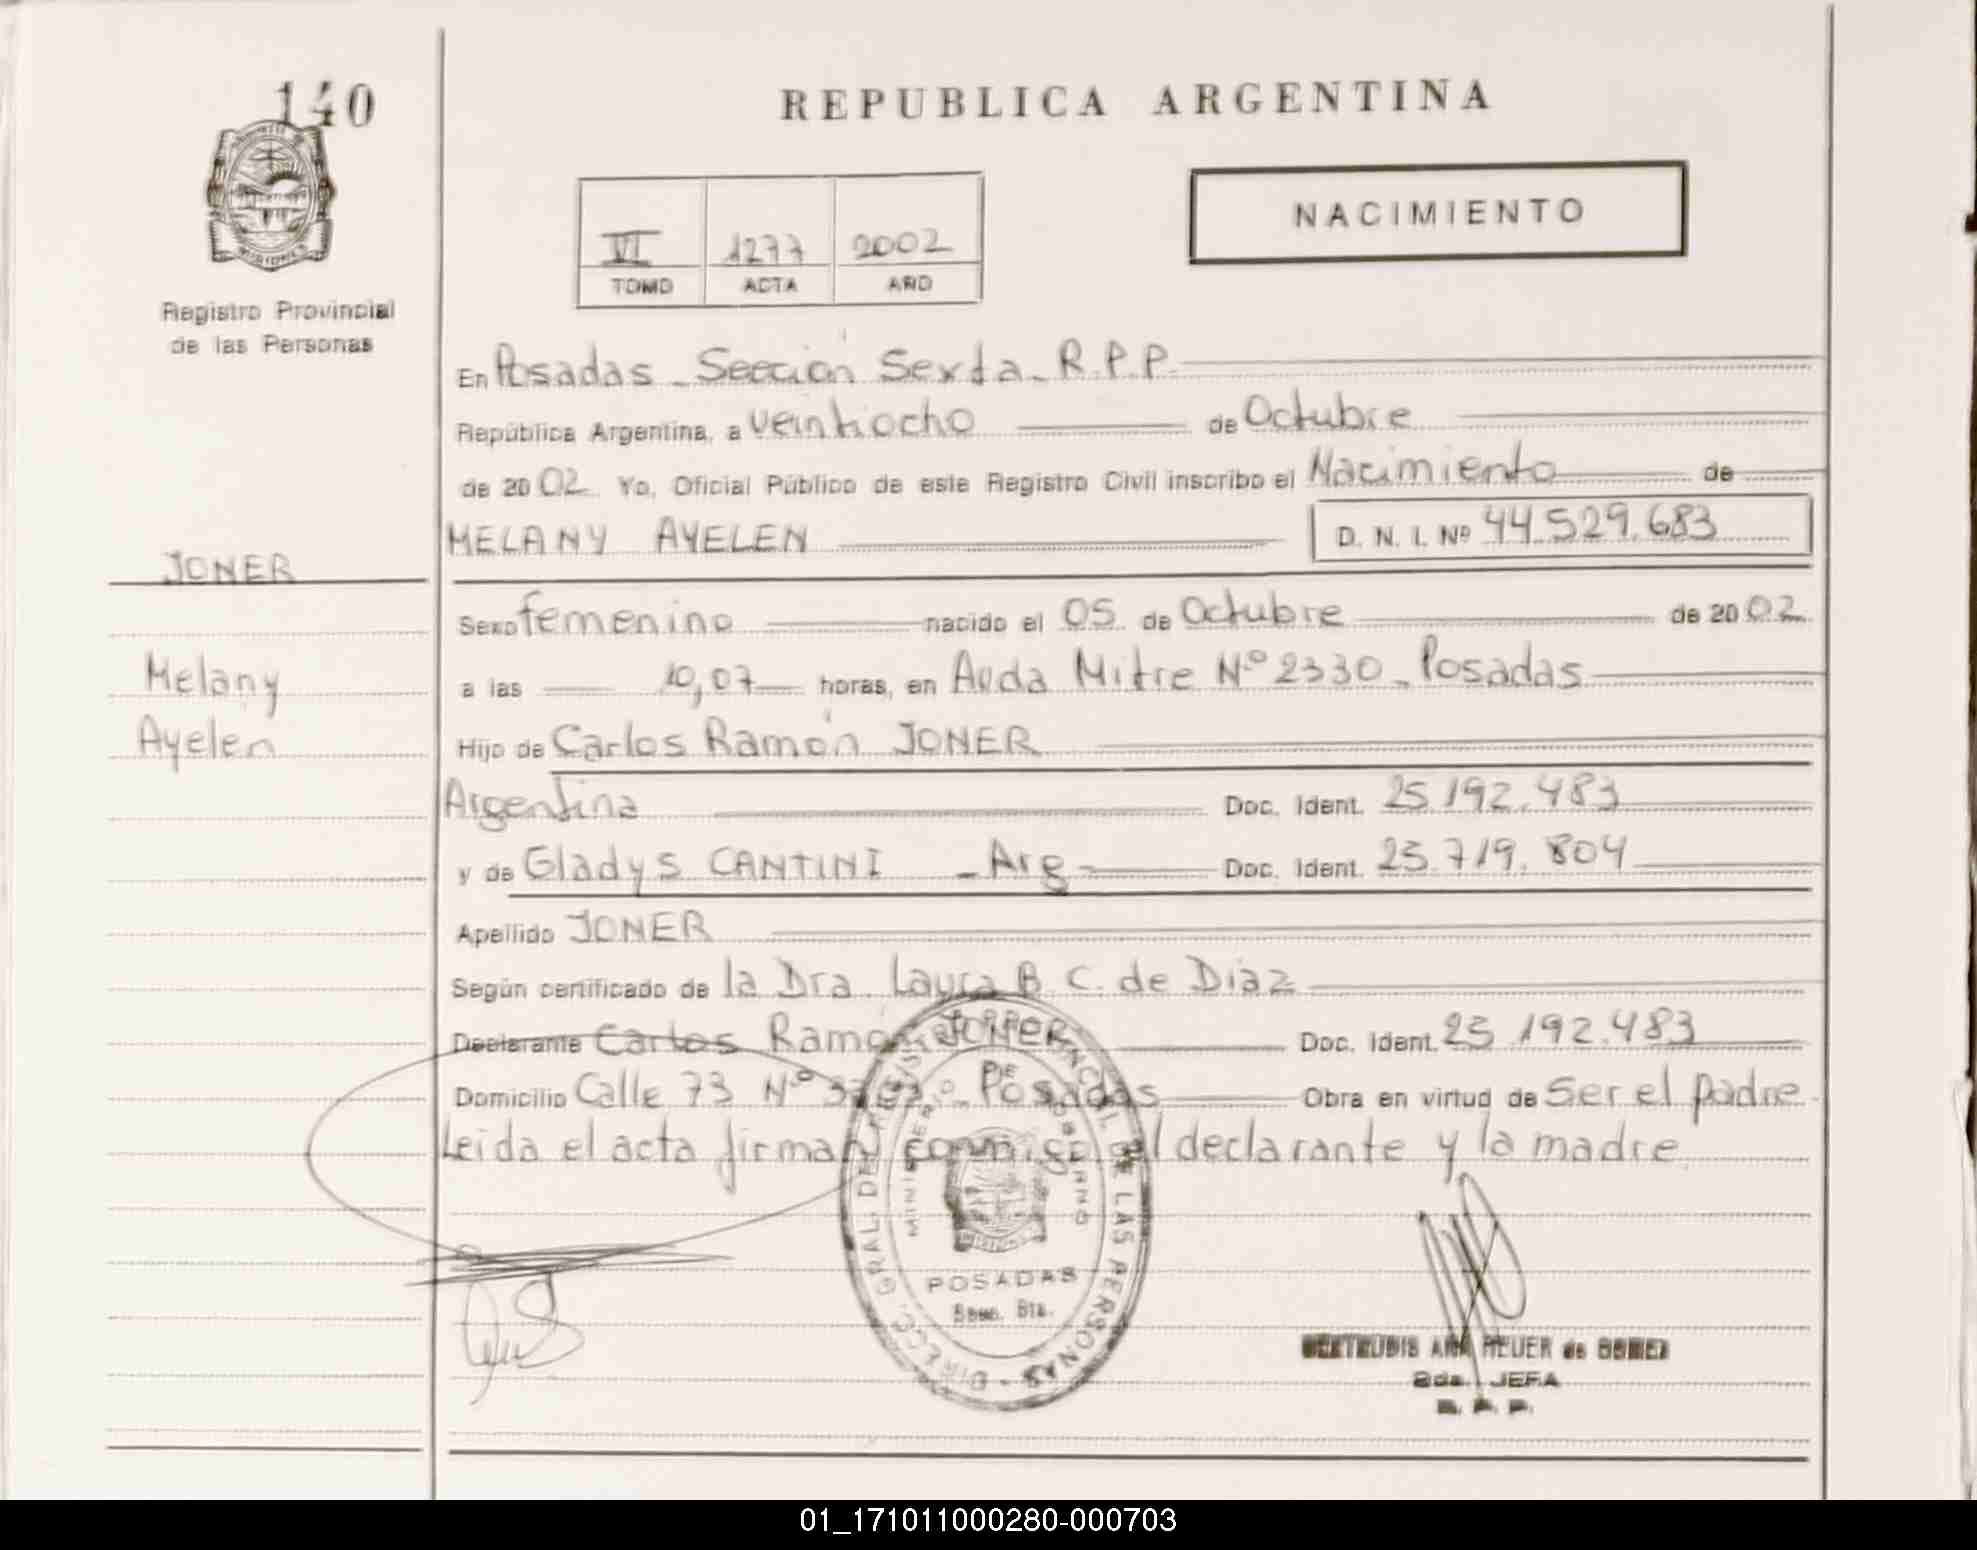 140
REPUBLICA ARGENTINA
NACIMIENTO
VI 1277 2002
TOMO ACTA AÑO
Registro Provincial
de las Personas
En Posadas - Sección Sexta - R.P.P.
República Argentina, a veintiocho de Octubre
de 2002 Yo, Oficial Público de este Registro Civil inscribo el Nacimiento de
MELANY AYELEN D. N. I. Nº 44.529.683
JONER
Melany
Ayelen
Sexo femenino nacido el 05 de Octubre de 2002
a las 10,07 horas, en Avda Mitre Nº 2330 - Posadas
Hijo de Carlos Ramón JONER
Argentina Doc. Ident. 25.192.483
y de Gladys CANTINI - Arg Doc. Ident. 25.719.804
Apellido JONER
Según certificado de la Dra. Laura B. C. de Diaz
Declarante Carlos Ramón JONER Doc. Ident. 25.192.483
Domicilio Calle 73 Nº Posadas Obra en virtud de Ser el padre
Leida el acta firman conmigo el declarante y la madre
DIRECC. GRAL. DEL REGISTRO PROVINCIAL DE LAS PERSONAS
MINISTERIO DE GOBIERNO
POSADAS
ANA REUER de
2da. JEFA
R. P. P.
01_171011000280-000703